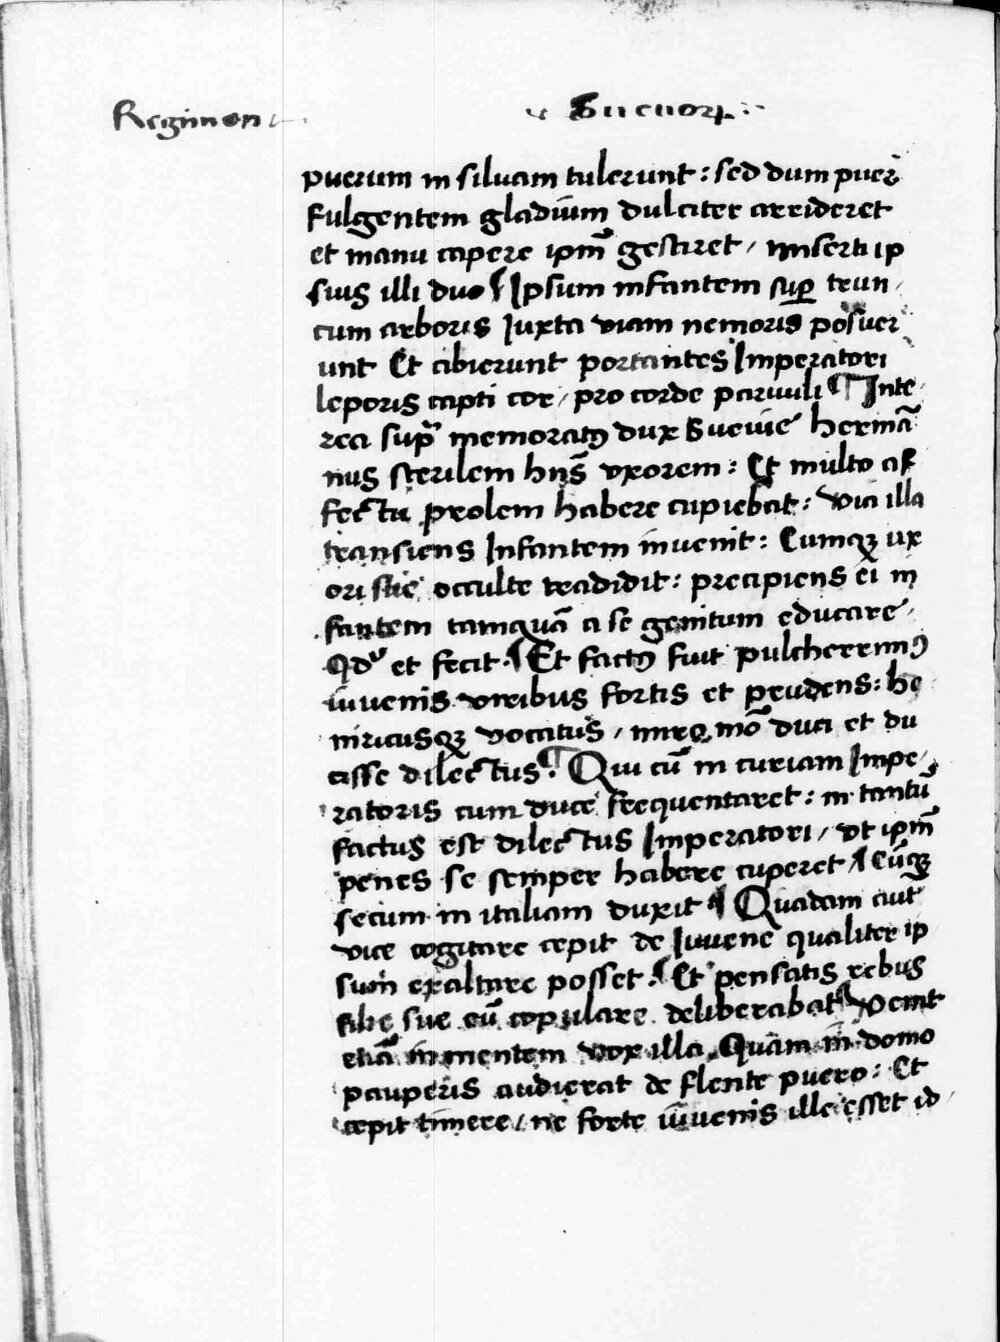 Regimen
Sueuoꝝ
puerum in siluam tulerunt : sed dum puer
fulgentem gladiū̄m dulciter arrideret
et manu capere ipm̄ gestiret / miserti ip
sius illi duo ¶ Ipsum infantem sup̱ trun
cum arboris Iuxta viam nemoris posuer
unt Et abierunt portantes Imperatori
leporis capti cor / pro corde paruuli ¶ Inte
rea sup̄ memoratꝰ dux Sueuie hermā
nus sterilem hn̄s vxorem : Et multo af
fectu prolem habere cupiebat : via illa
transiens Infantem inuenit : Cumqꝫ ux
ori sue occulte tradidit : precipiens ei in
fantem tamquā a se genitum educare
Qd et fecit ¶ Et factꝰ fuit pulcherrimꝰ
iuuenis viribus fortis et prudens : he
nricusqꝫ vocatus / miro mō duci et du
cisse dilectus ¶ Qui cū in curiam Impe
ratoris cum duce frequentaret : in tantū
factus est dilectus Imperatori / vt ipm̄
penes se semper habere cuperet / Cūqꝫ
secum in italiam duxit ¶ Quadam aut̄
vice cogitare cepit de Iuuene qualiter ip
sum exaltare posset ¶ Et pensatis rebus
filie sue eū copulare deliberabat ¶ Venit
etiā in mentem vox illa Quam in domo
pauperis audierat de flente puero : Et
cepit timere / ne forte iuuenis ille esset id